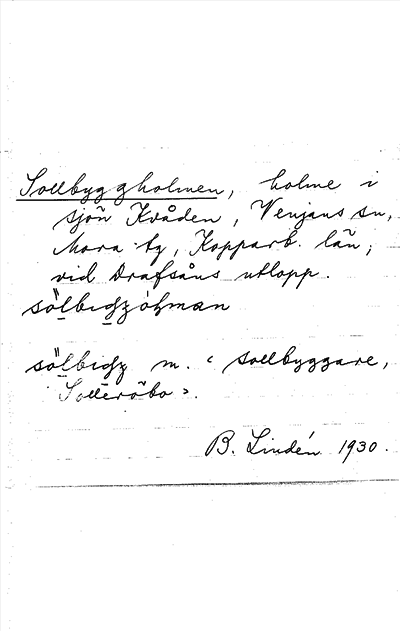 Sollbyggholmen, holme i
sjön Kvåden, Venjans sn,
Mora tg, Kopparb. län,
vid Drafsåns utlopp.
sölbigzòłman
sölbigz m. ‹ sollbyggare,
Solleröbo ›.
B. Lindén 1930.